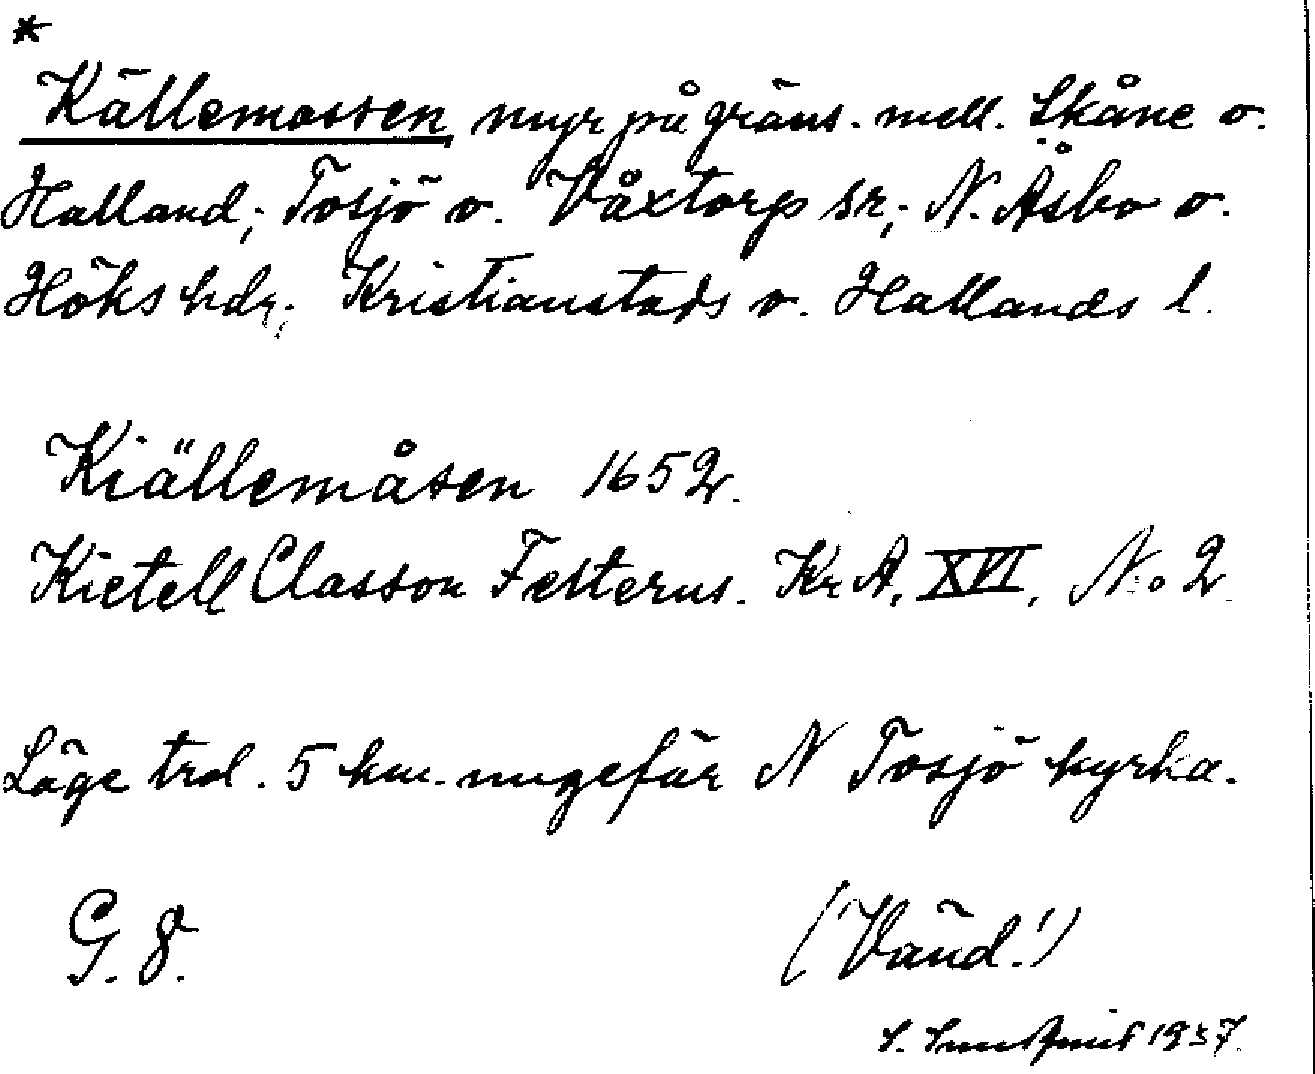 *
Källemossen, myr på gräns. mell. Skåne o.
Halland; Tosjö o. Våxtorp sr; N. Åsbo o.
Höks hdr; Kristianstads o. Hallands l.
Kiällemåsen 1652.
Kietell Classon Felterus. Kr A. XVI, No 2
Läge trol. 5 km. ungefär N Tosjö kyrka.
G. 8.
(Vänd!)
S. 1937.